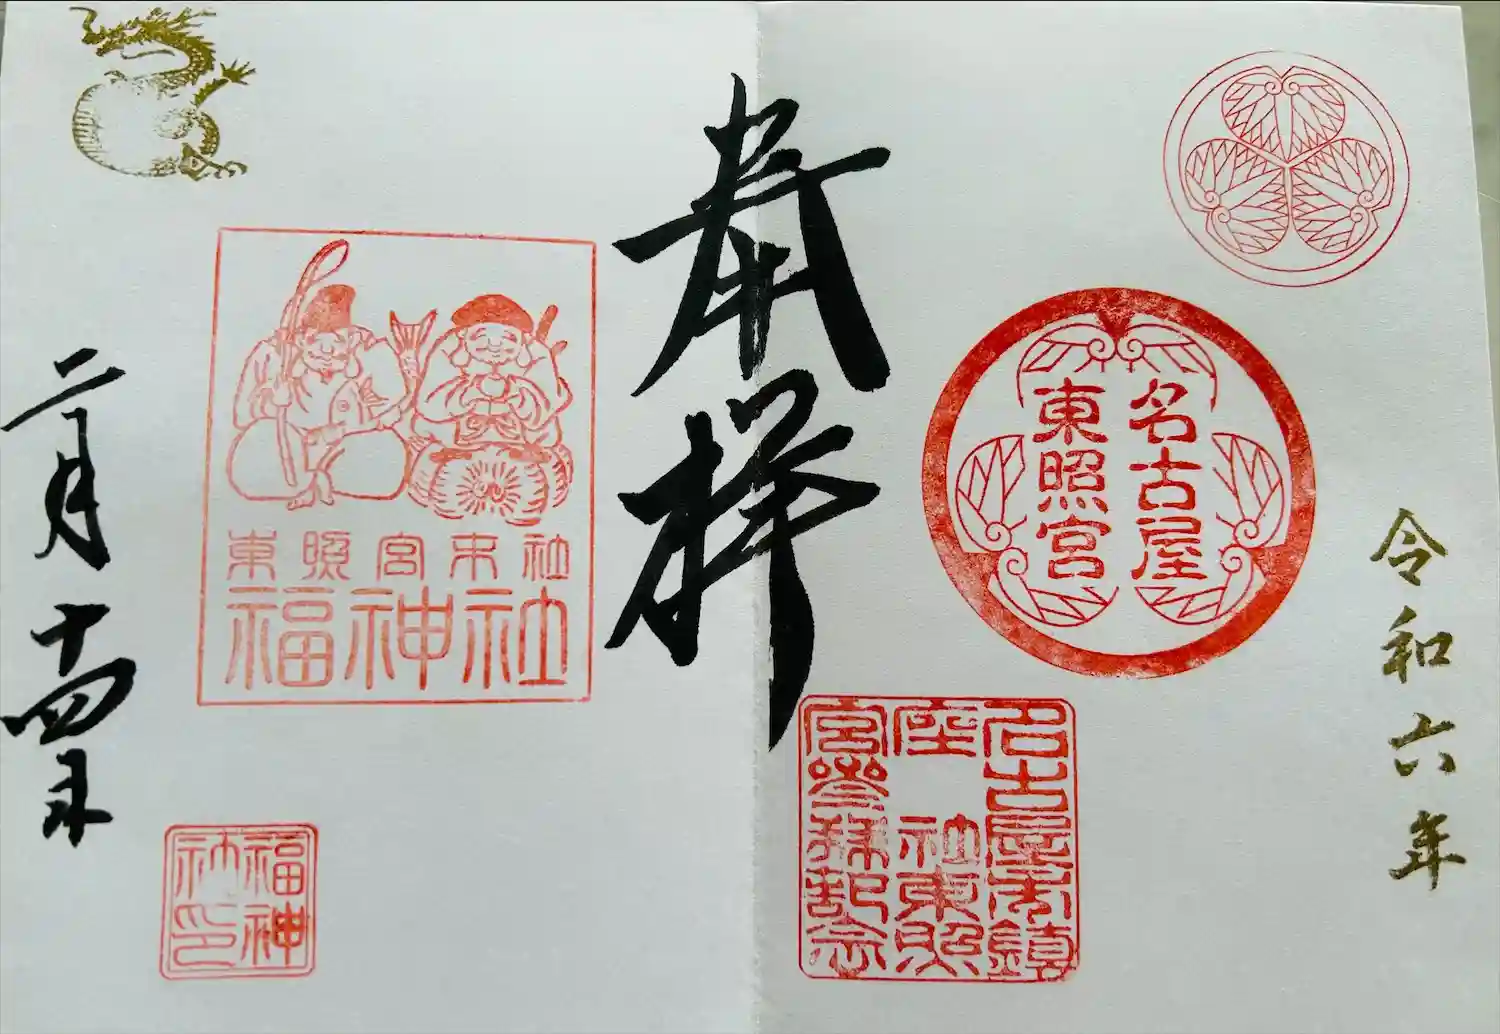 令和六年
名古屋
東照宮
名古屋市鎮
座社東照
宮參拜記念
奉拝
東照宮末社
福神社
福神
社印
二月十四日